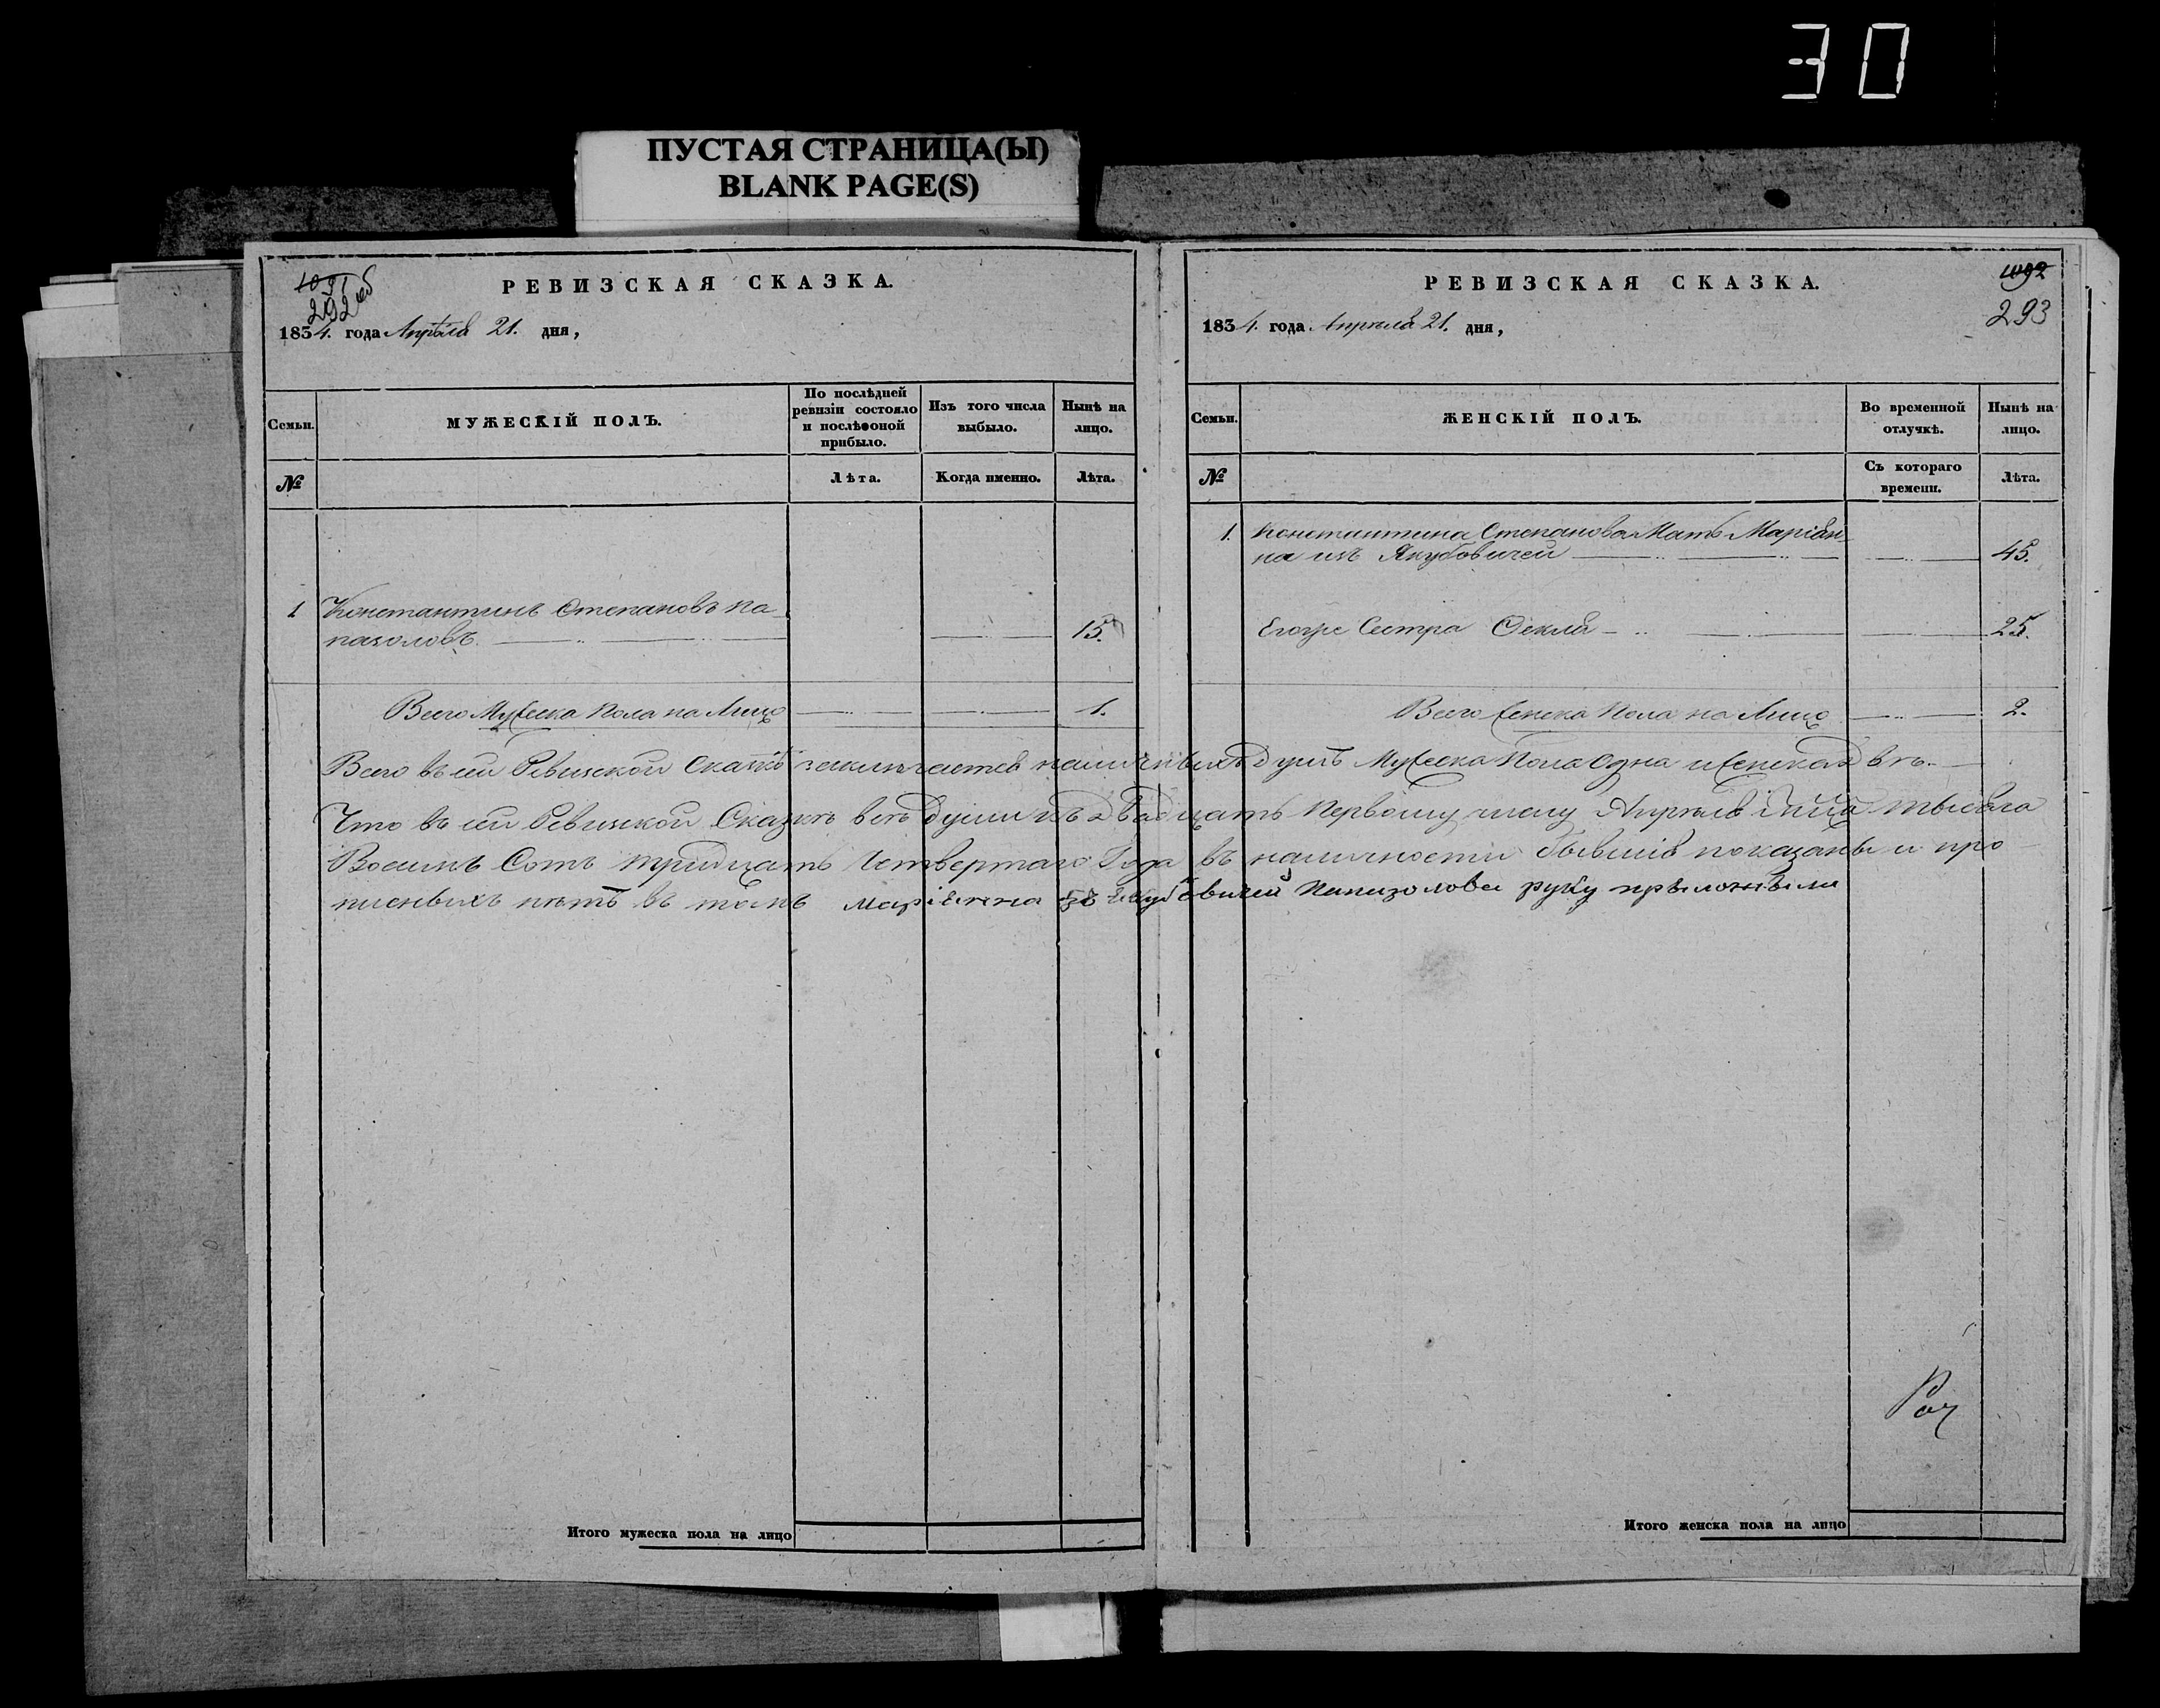 30
ПУСТАЯ СТРАНИЦА(Ы)
BLANK PAGE(S)
1091 об
292 об
РЕВИЗСКАЯ СКАЗКА.
1834. года Апрѣля 21. дня,
Семьи. МУЖЕСКІЙ ПОЛЪ. По послѣдней ревизіи состояло и послѣ оной прибыло. Изъ того числа выбыло. Нынѣ на лицо.
№ Лѣта. Когда именно. Лѣта.
1 Константинъ Степановъ Па-
пазоловъ. 15.
Всего Мужеска Пола на Лицо 1.
1092
293
РЕВИЗСКАЯ СКАЗКА.
1834. года Апрѣля 21. дня,
Семьи. ЖЕНСКІЙ ПОЛЪ. Во временной отлучкѣ. Нынѣ на лицо.
№ Съ котораго времени. Лѣта.
1. Константина Степанова Мать Маріан-
на изъ Якубовичей 45.
Егоже Сестра Фекла 25.
Всего женска Пола на Лицо 2.
Всего въ сей Ревизской Сказкѣ заключается наличныхъ душъ Мужеска Пола Одна и женска двѣ.
Что въ сей Ревизской Сказкѣ всѣ души къ двадцать Первому числу Апрѣля тысяча
Восемь Сотъ тридцать Четвертаго Года въ наличности бывшія показаны и про
писныхъ нѣтъ въ томъ Маріанна Якубовичей Папазолова руку прыложила
Итого мужеска пола на лицо
Итого женска пола на лицо